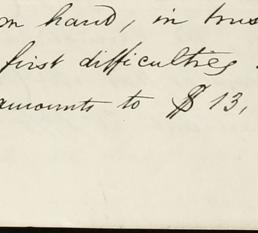 on hand, in trus
first difficulties
amounts to $13,